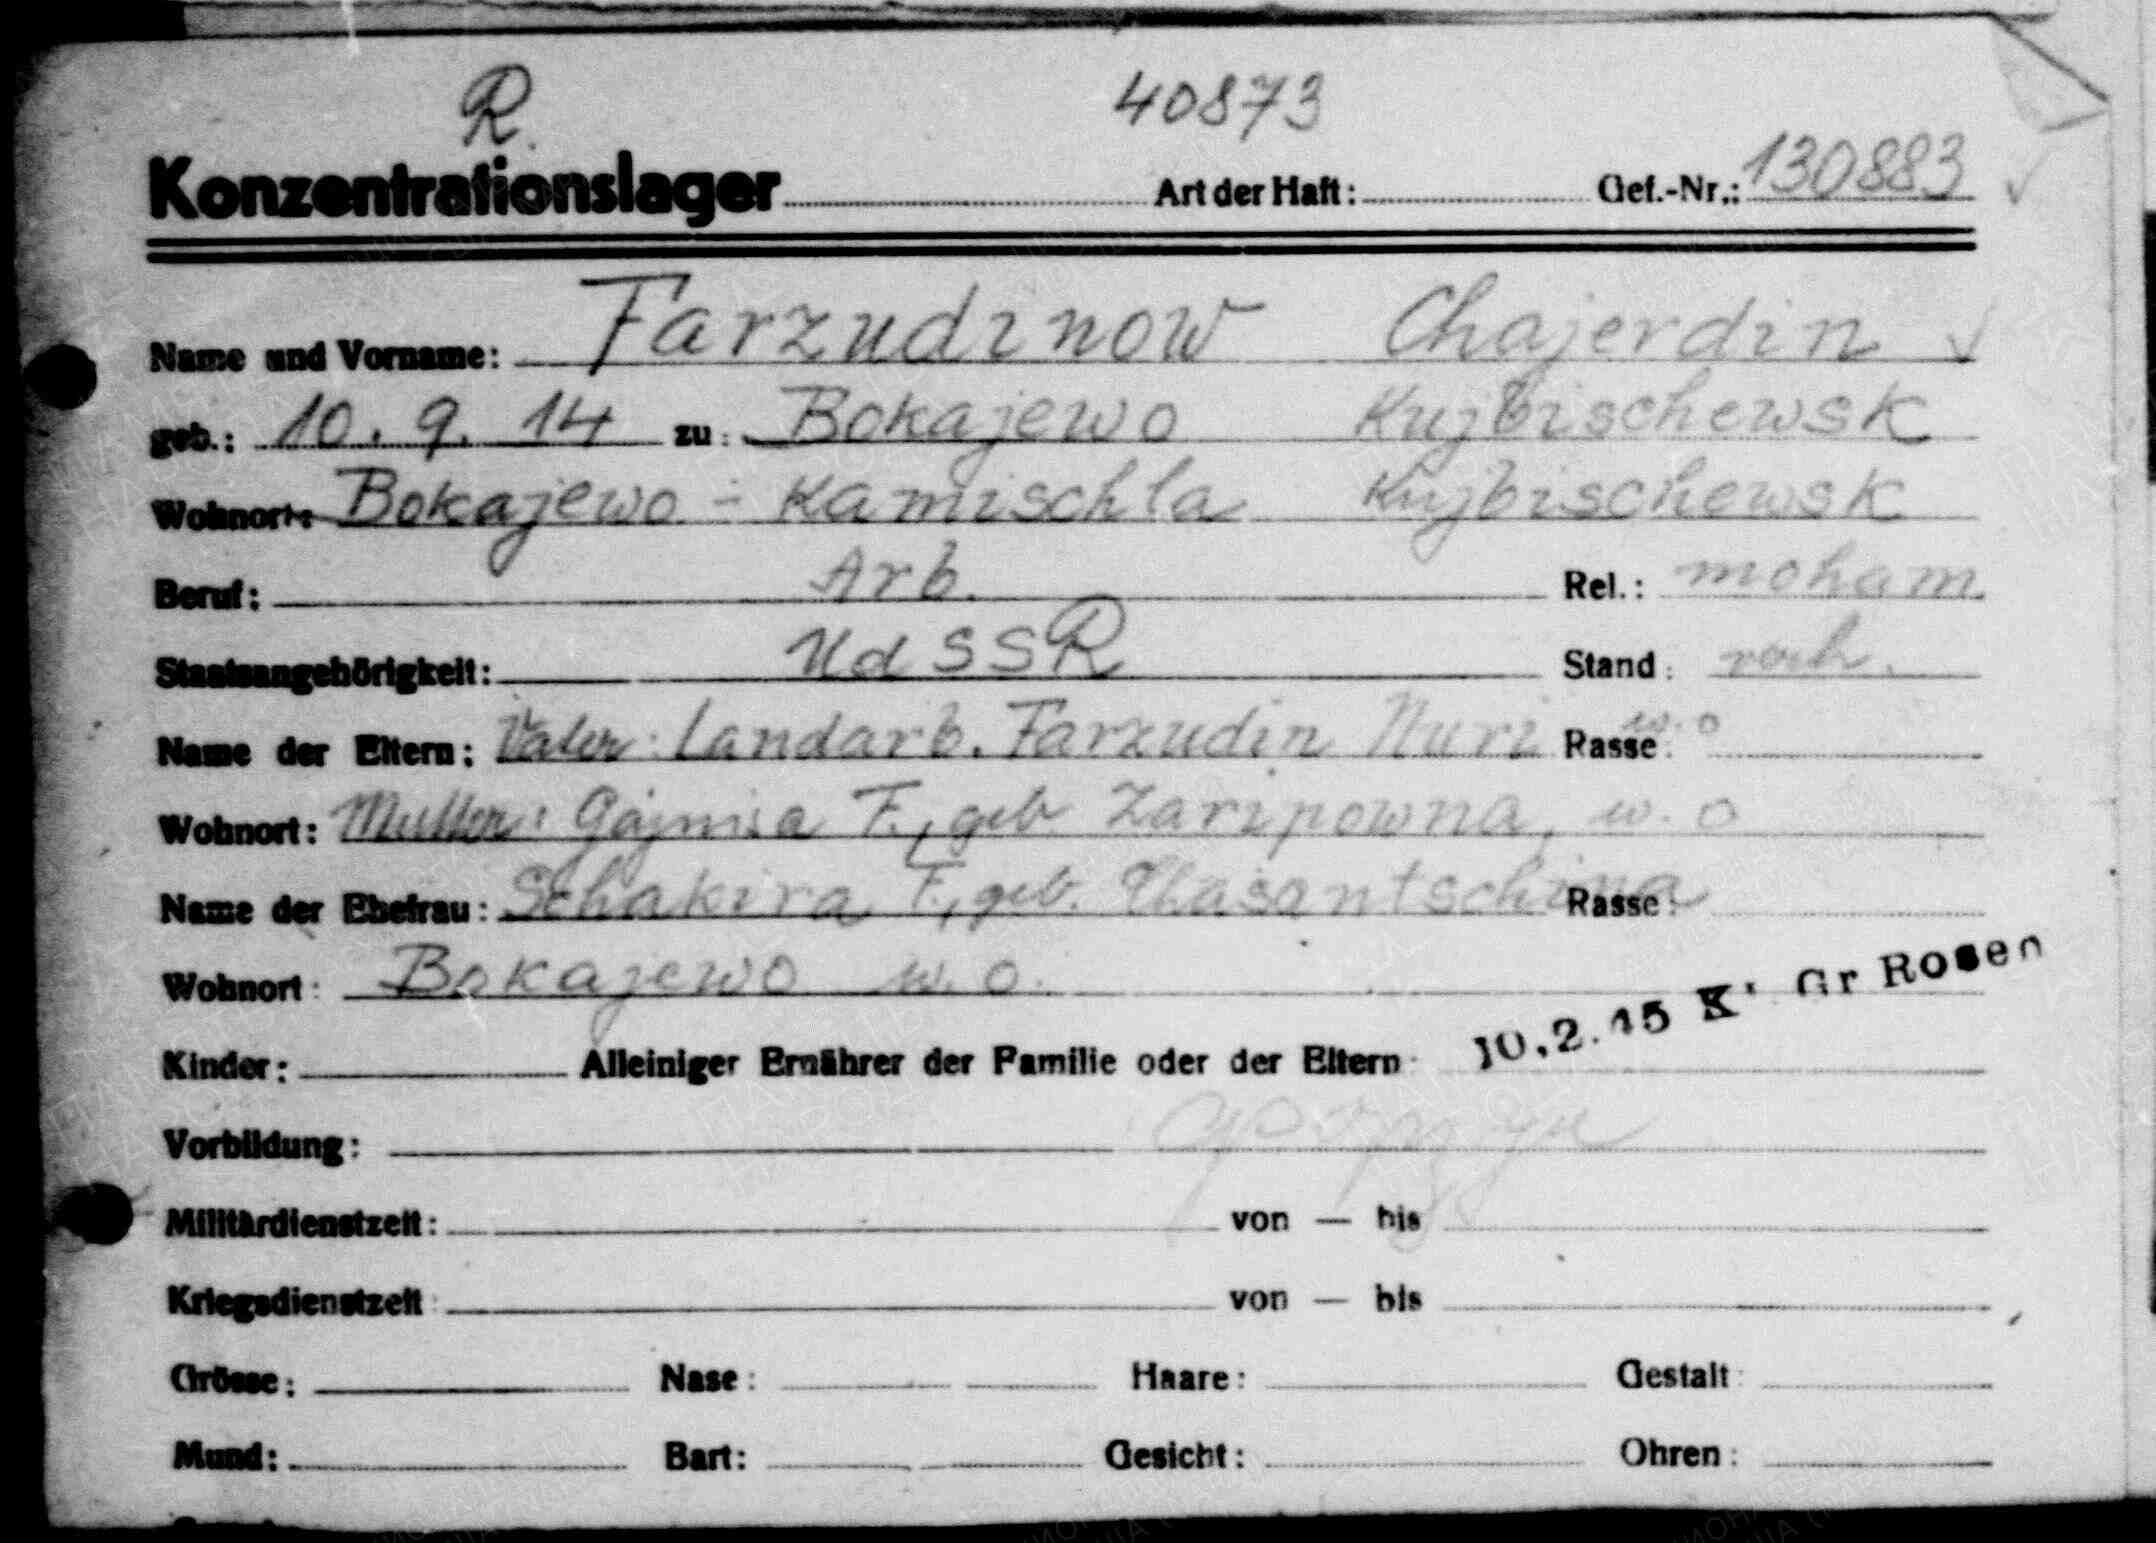 R.
40873
Konzentrationslager Art der Haft: Gef.-Nr.: 130883
Name und Vorname: Farzudinow Chajerdin
geb.: 10. 9. 14 zu: Bokajewo Kujbischewsk
Wohnort: Bokajewo - Kamischla Kujbischewsk
Beruf: Arb. Rel.: moham.
Staatsangehörigkeit: UdSSR Stand: verh.
Name der Eltern: Vater: Landarb. Farzudin Nuri w. o Rasse:
Wohnort: Mutter: F., geb. Zaripowna, w. o
Name der Ehefrau: Schakira F., geb. Chasantschina Rasse:
Wohnort: Bokajewo w. o.
10.2.45 K' Gr Rosen
Kinder: Alleiniger Ernährer der Familie oder der Eltern:
Vorbildung:
Militärdienstzeit: von — bis
Kriegsdienstzeit: von — bis
Grösse: Nase: Haare: Gestalt:
Mund: Bart: Gesicht: Ohren: